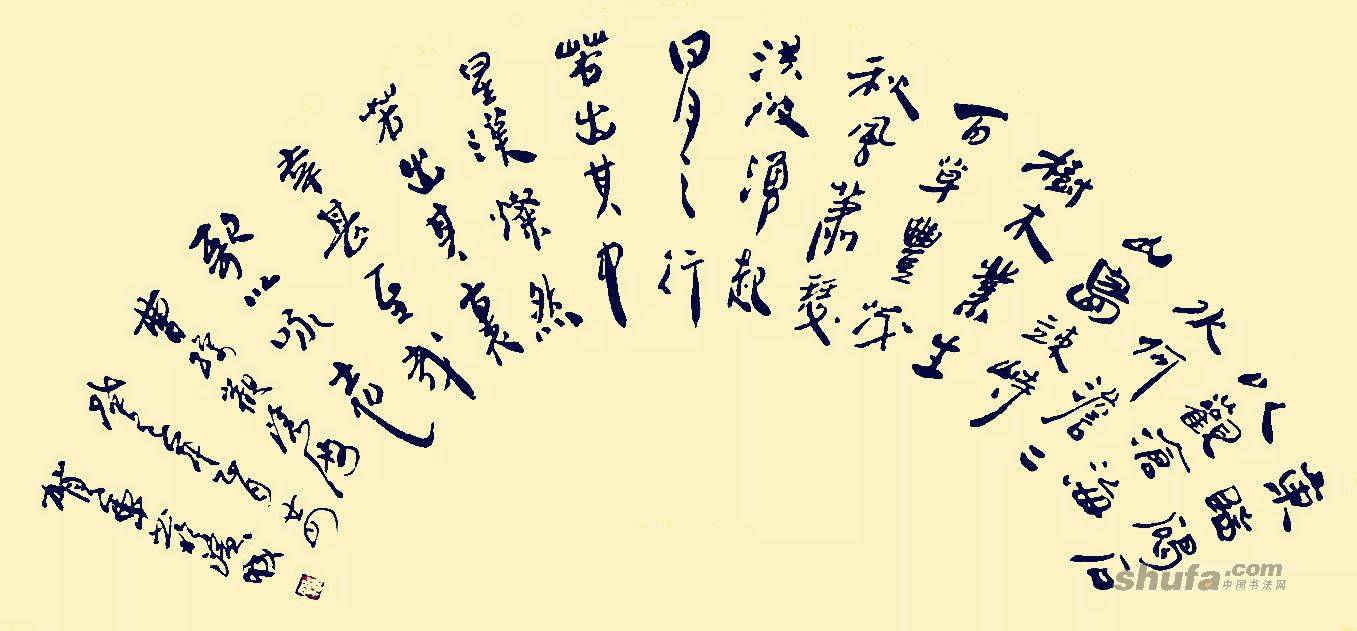 東臨碣石
以觀滄海
水何澹二
山島竦峙
樹木叢生
百草豐茂
秋風蕭瑟
洪波湧起
日月之行
若出其中
星漢燦然
若出其裏
幸甚至哉
歌以咏志
曹操觀滄海
shufa.com
中国书法网